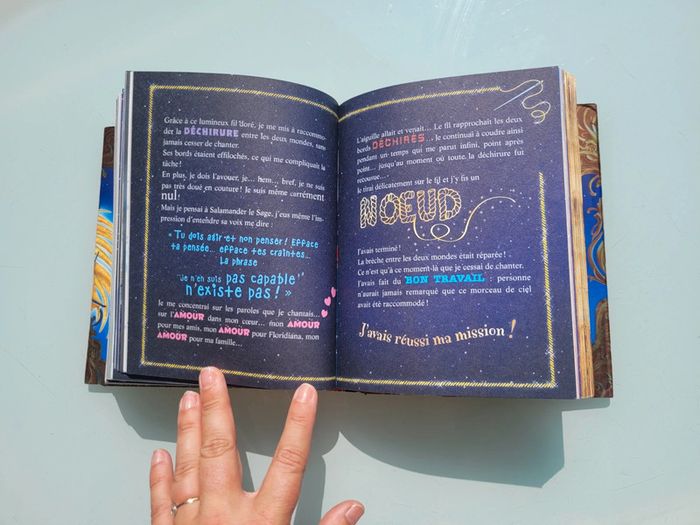 Grâce à ce lumineux fil doré, je me mis à raccommo-
der la DÉCHIRURE entre les deux mondes, sans
jamais cesser de chanter.
Ses bords étaient effilochés, ce qui me compliquait la
tâche !
En plus, je dois l'avouer, je... hem... bref, je ne suis
pas très doué en couture ! Je suis même carrément
nul !
Mais je pensai à Salamander le Sage, j'eus même l'im-
pression d'entendre sa voix me dire :
« Tu dois agir et non penser ! Efface
ta pensée... efface tes craintes...
La phrase
"Je n'en suis pas capable"
n'existe pas ! »
Je me concentrai sur les paroles que je chantais...
sur l'AMOUR dans mon cœur... mon AMOUR
pour mes amis, mon AMOUR pour Floridiana, mon
AMOUR pour ma famille...
L'aiguille allait et venait... Le fil rapprochait les deux
bords DÉCHIRÉS... je continuai à coudre ainsi
pendant un temps qui me parut infini, point après
point... jusqu'au moment où toute la déchirure fut
recousue...
Je tirai délicatement sur le fil et j'y fis un
NOEUD
J'avais terminé !
La brèche entre les deux mondes était réparée !
Ce n'est qu'à ce moment-là que je cessai de chanter.
J'avais fait du BON TRAVAIL : personne
n'aurait jamais remarqué que ce morceau de ciel
avait été raccommodé !
J'avais réussi ma mission !